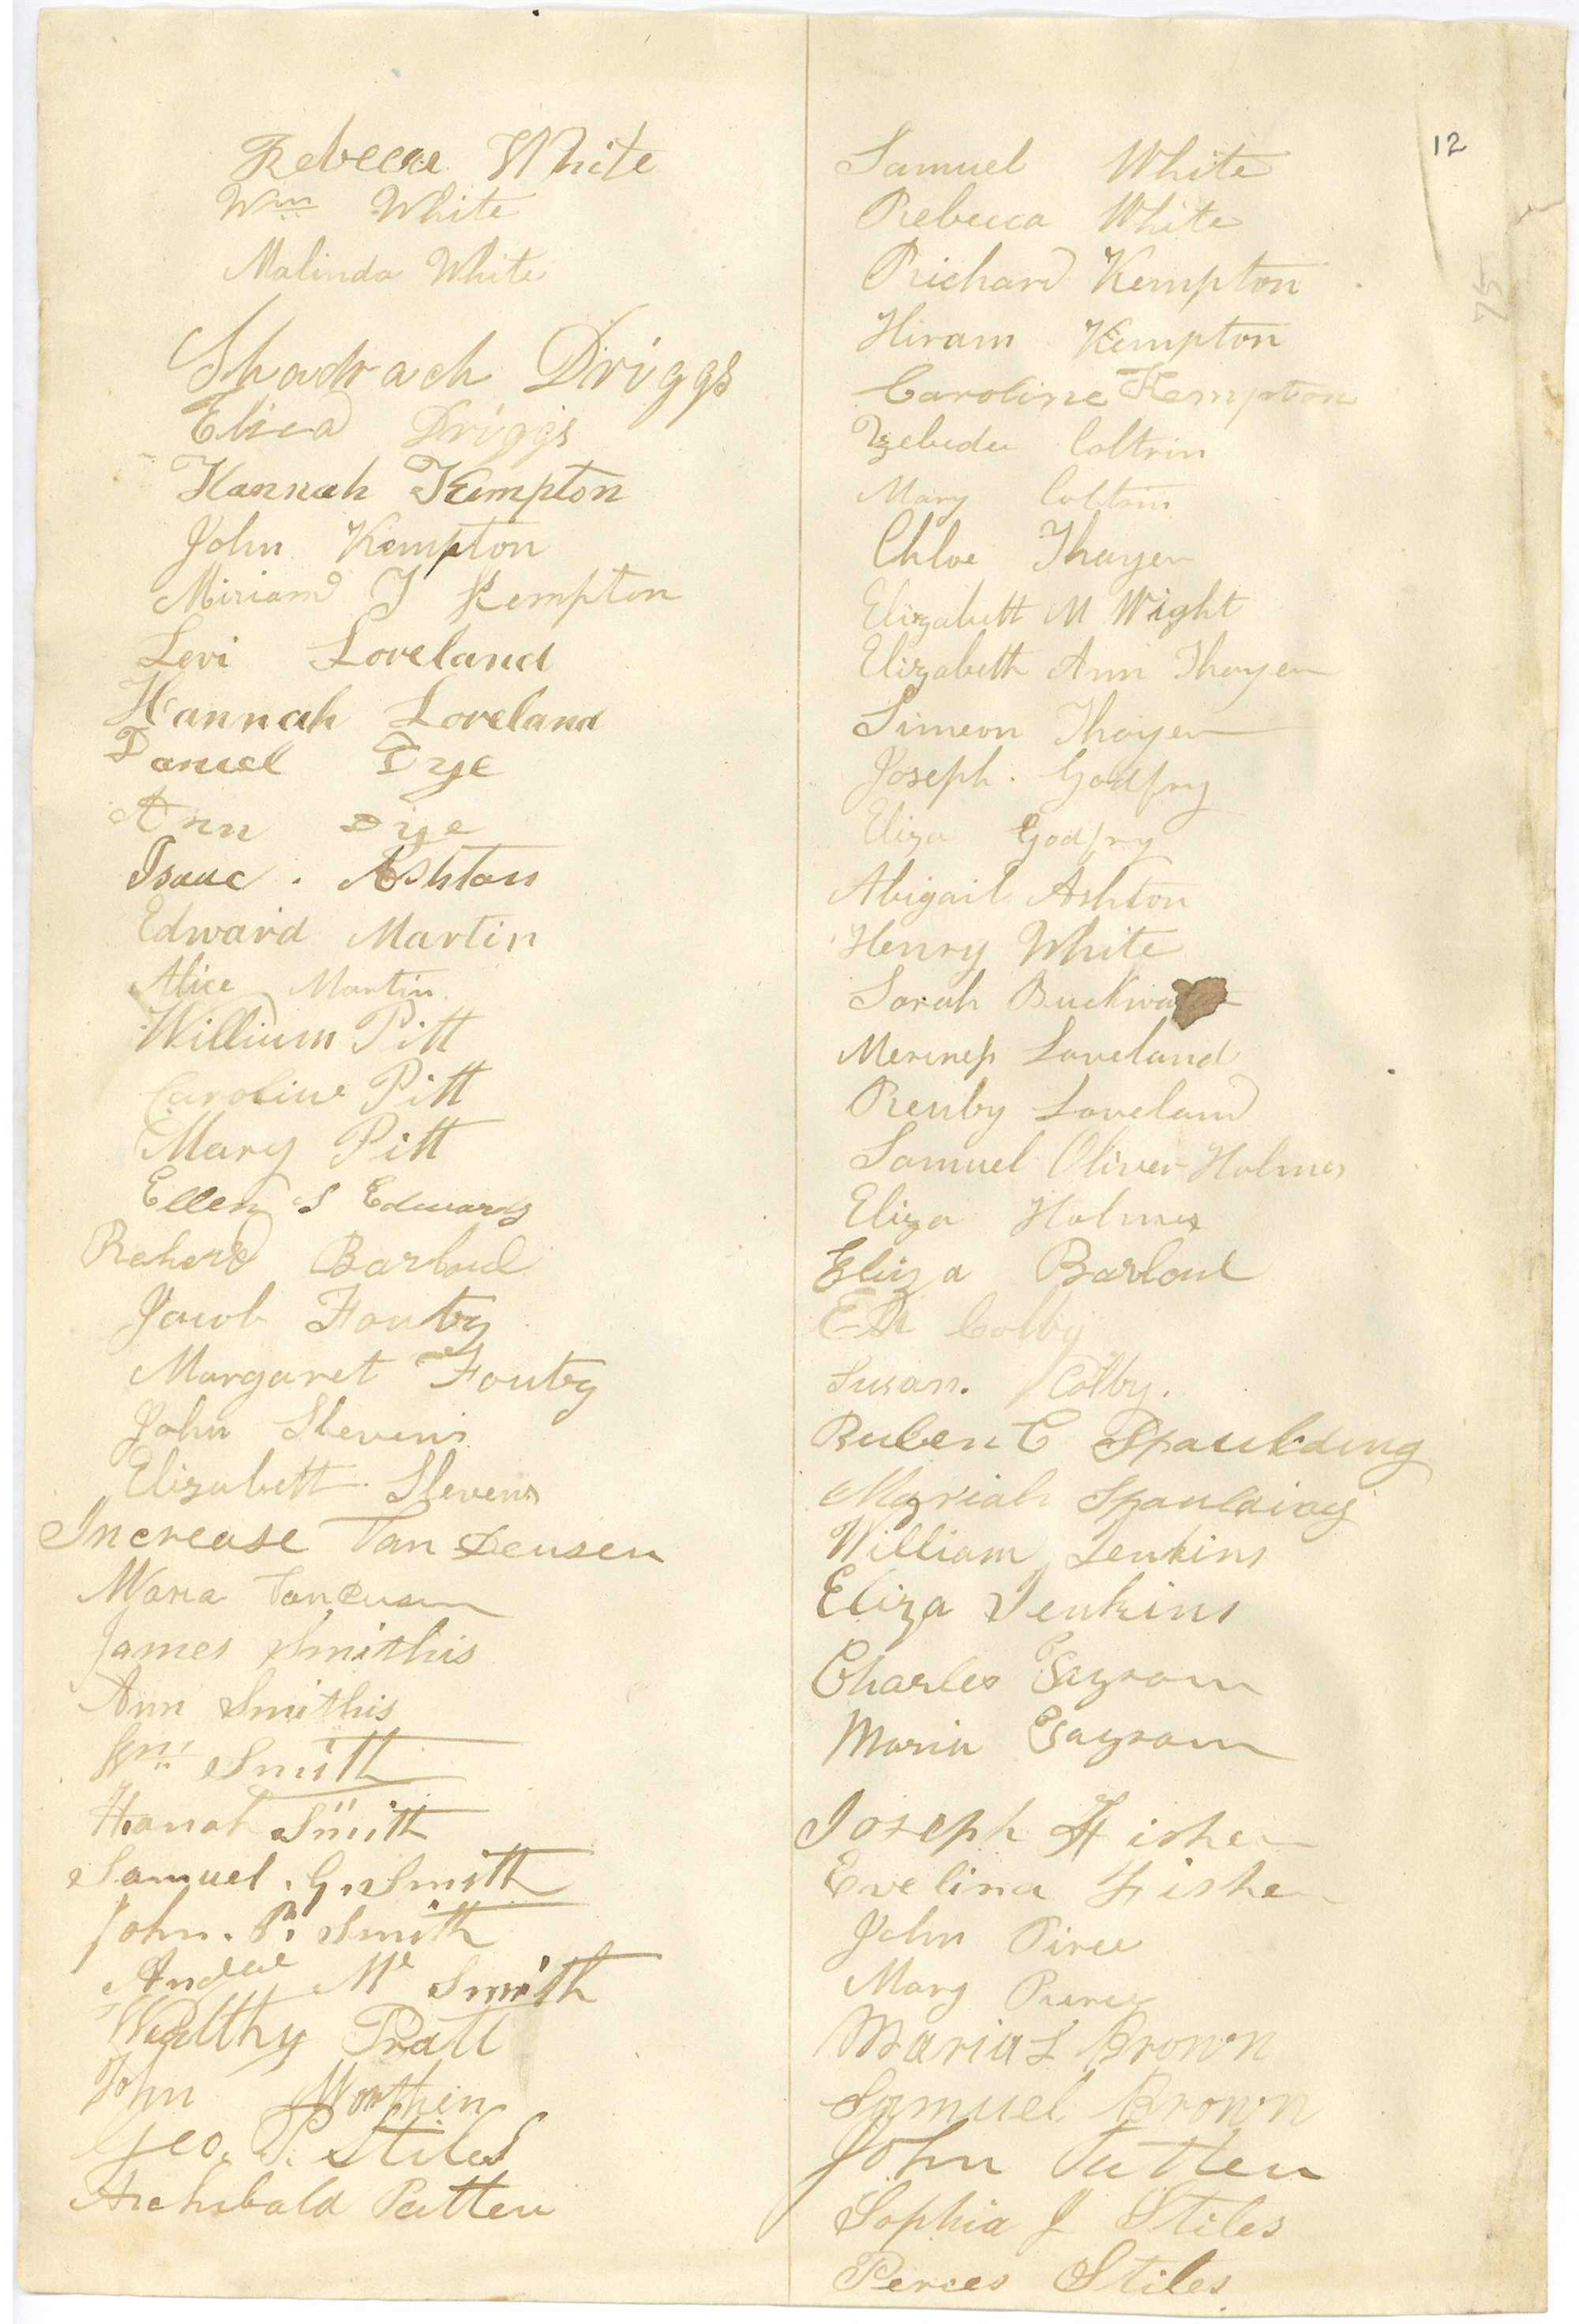 12
75
Rebecca White
Wm White
Malinda White
Shadrach Driggs
Eliza Driggs
Hannah Kempton
John Kempton
Miriam J Kempton
Levi Loveland
Hannah Loveland
Daniel Dye
Ann Dye
Isaac . Ashton
Edward Martin
Alice Martin
Willium Pitt
Caroline Pitt
Mary Pitt
Ellen S Edwards
Barloul
Jacob Foutz
Margaret Foutz
John Stevens
Elizabett Stevens
Increase Van Deusen
Maria
James Smithis
Ann Smithis
Wm Smith
Hanah Smith
Samuel . G. Smith
John . P. Smith
Smith
Pratt
John Worthen
Geo. P. Stiles
Archibald Patten
Samuel White
Rebecca White
Richard Kempton
Hiram Kempton
Caroline Kempton
Zebedee Coltrin
Mary Coltrin
Chloe Thayer
Elizabett M Wight
Elizabeth Ann Thayer
Simeon Thayer
Joseph . Godfry
Eliza Godfry
Abigail Ashton
Henry White
Sarah
Loveland
Loveland
Samuel Oliver Holmes
Eliza Holmes
Eliza Barloul
Eli Colby
Susan. Colby.
Ruben C Spaulding
Mariah Spaulding
William Jenkins
Eliza Jenkins
Charles
Maria
Joseph Fisher
Evelina Fisher
John Pirce
Mary Pierce
Maria L Brown
Samuel Brown
John Tutten
Sophia J Stiles
Perces Stiles